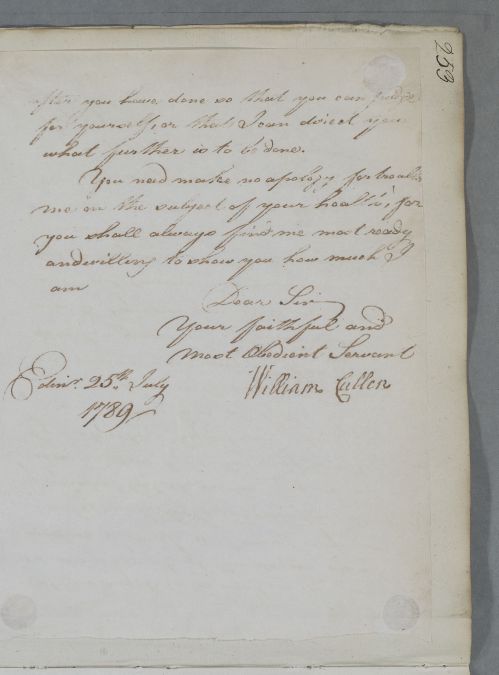 253
after you have done so that you can judge
for yourself, or that I can direct you
what further is to be done.
You need make no apology for troubling
me on the subject of your health, for
you shall always find me most ready
and willing to show you how much I
am
Dear Sir
Your faithful and
most Obedient Servant
William Cullen
Edinr. 25th. July
1789